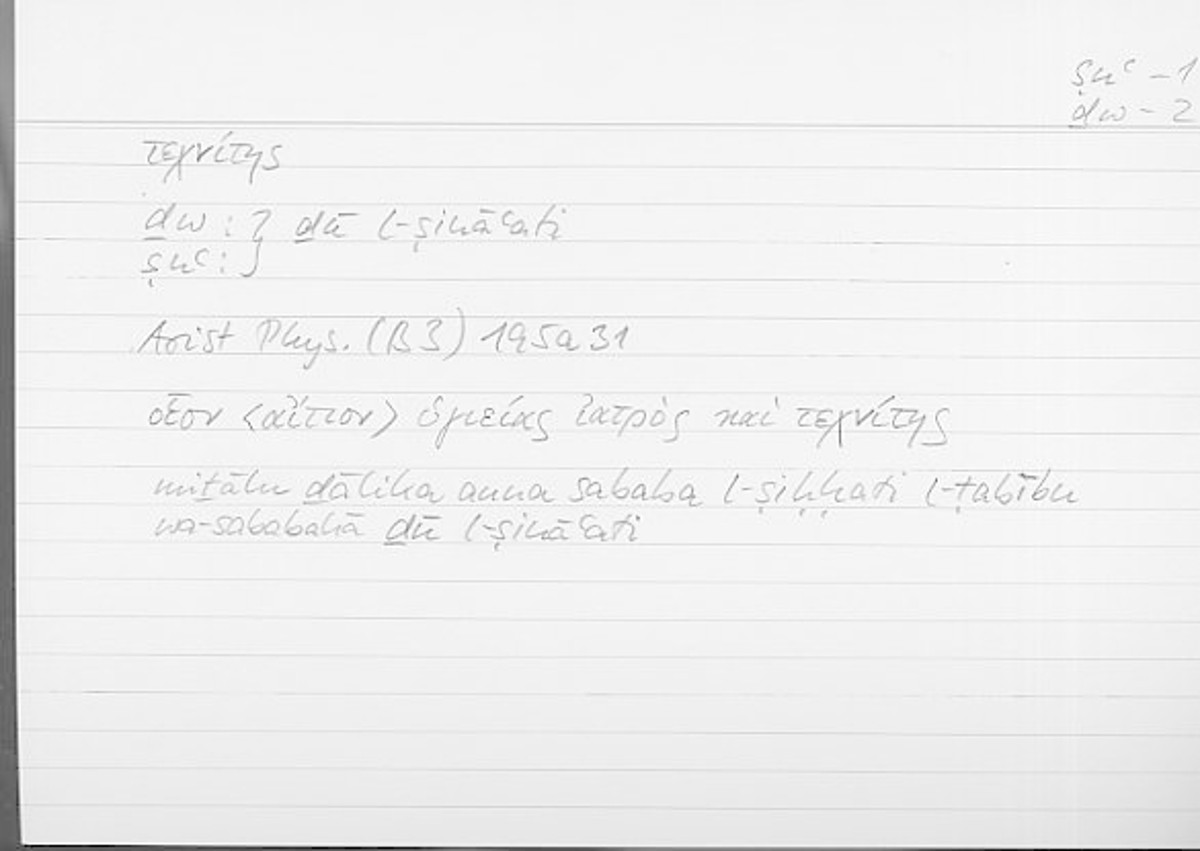 ṣnʿ – 1
ḏw – 2
τεχνίτης
ḏw : } ḏū l-ṣināʿati
ṣnʿ : }
Arist Phys. (B 3) 195a 31
οἷον <αἴτιον> ὑγιείας ἰατρὸς καὶ τεχνίτης
miṯālu ḏālika anna sababa l-ṣiḥḥati l-ṭabību
wa-sababahā ḏū l-ṣināʿati